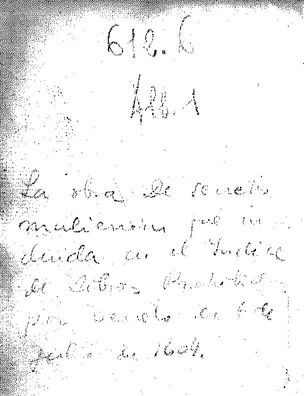 612.6
Alb.1
La obra De secretis
mulierum fue in
cluida en el Indice
de Libros Prohibidos
por Decreto de 6 de
julio de 1604.